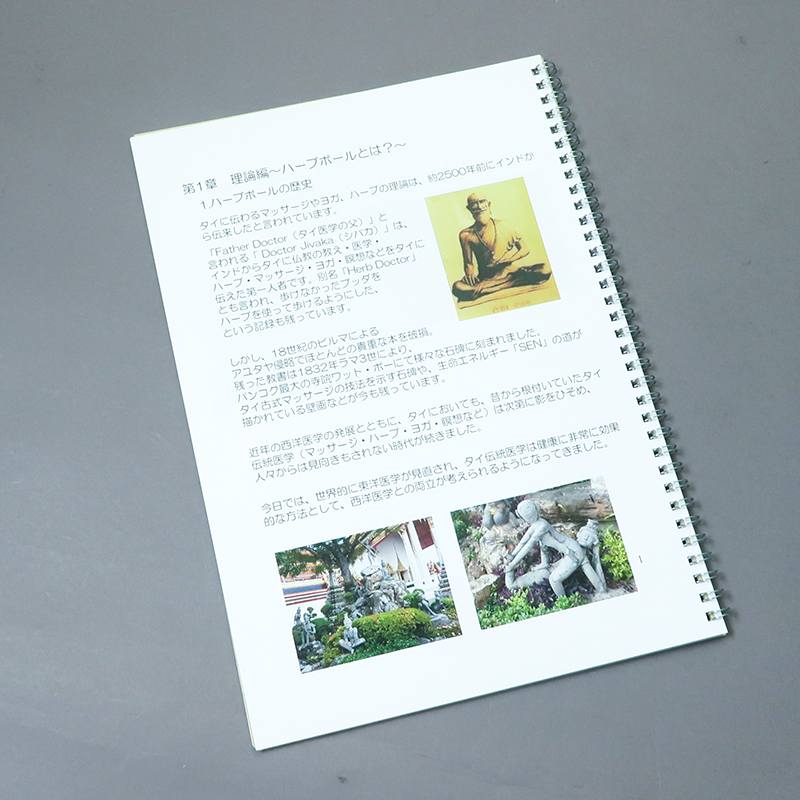 第1章　理論編～ハーブボールとは？～
1.ハーブボールの歴史
タイに伝わるマッサージやヨガ、ハーブの理論は、約2500年前にインドか
ら伝来したと言われています。
「Father Doctor（タイ医学の父）」と
言われる「 Doctor Jivaka（シバカ）」は、
インドからタイに仏教の教え・医学・
ハーブ・マッサージ・ヨガ・瞑想などをタイに
伝えた第一人者です。別名「Herb Doctor」
とも言われ、歩けなかったブッダを
ハーブを使って歩けるようにした、
という記録も残っています。
しかし、18世紀のビルマによる
アユタヤ侵略でほとんどの貴重な本を破損。
残った教書は1832年ラマ3世により、
バンコク最大の寺院ワット・ポーにて様々な石碑に刻まれました。
タイ古式マッサージの技法を示す石碑や、生命エネルギー「SEN」の道が
描かれている壁画などが今も残っています。
近年の西洋医学の発展とともに、タイにおいても、昔から根付いていたタイ
伝統医学（マッサージ・ハーブ・ヨガ・瞑想など）は次第に影をひそめ、
人々からは見向きもされない時代が続きました。
今日では、世界的に東洋医学が見直され、タイ伝統医学は健康に非常に効果
的な方法として、西洋医学との両立が考えられるようになってきました。
1